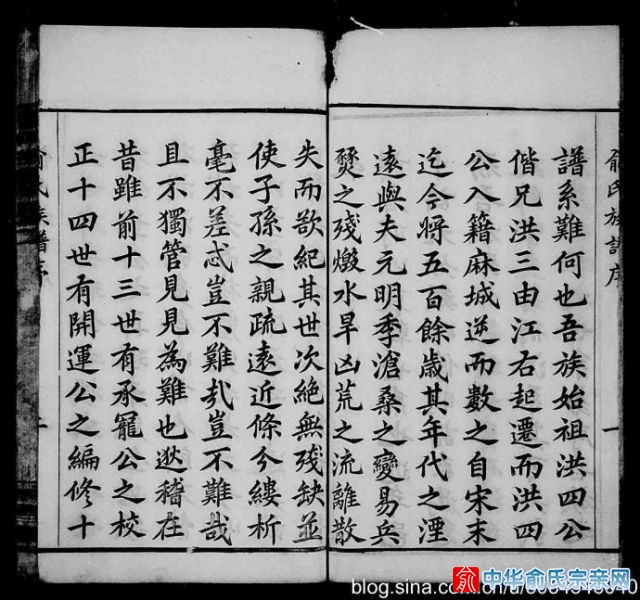 俞氏族譜序
一
譜系難何也吾族始祖洪四公
偕兄洪三由江右起遷而洪四
公入籍麻城逆而數之自宋末
迄今將五百餘歲其年代之湮
遠與夫元明季滄桑之變易兵
燹之殘燬水旱凶荒之流離散
失而欲紀其世次絶無殘缺並
使子孫之親疏遠近條今縷析
毫不差忒豈不難哉豈不難哉
且不獨管見見為難也逖稽在
昔雖前十三世有承寵公之校
正十四世有開運公之編修十
俞氏族譜序
中华俞氏宗亲网
blog.sina.com.cn